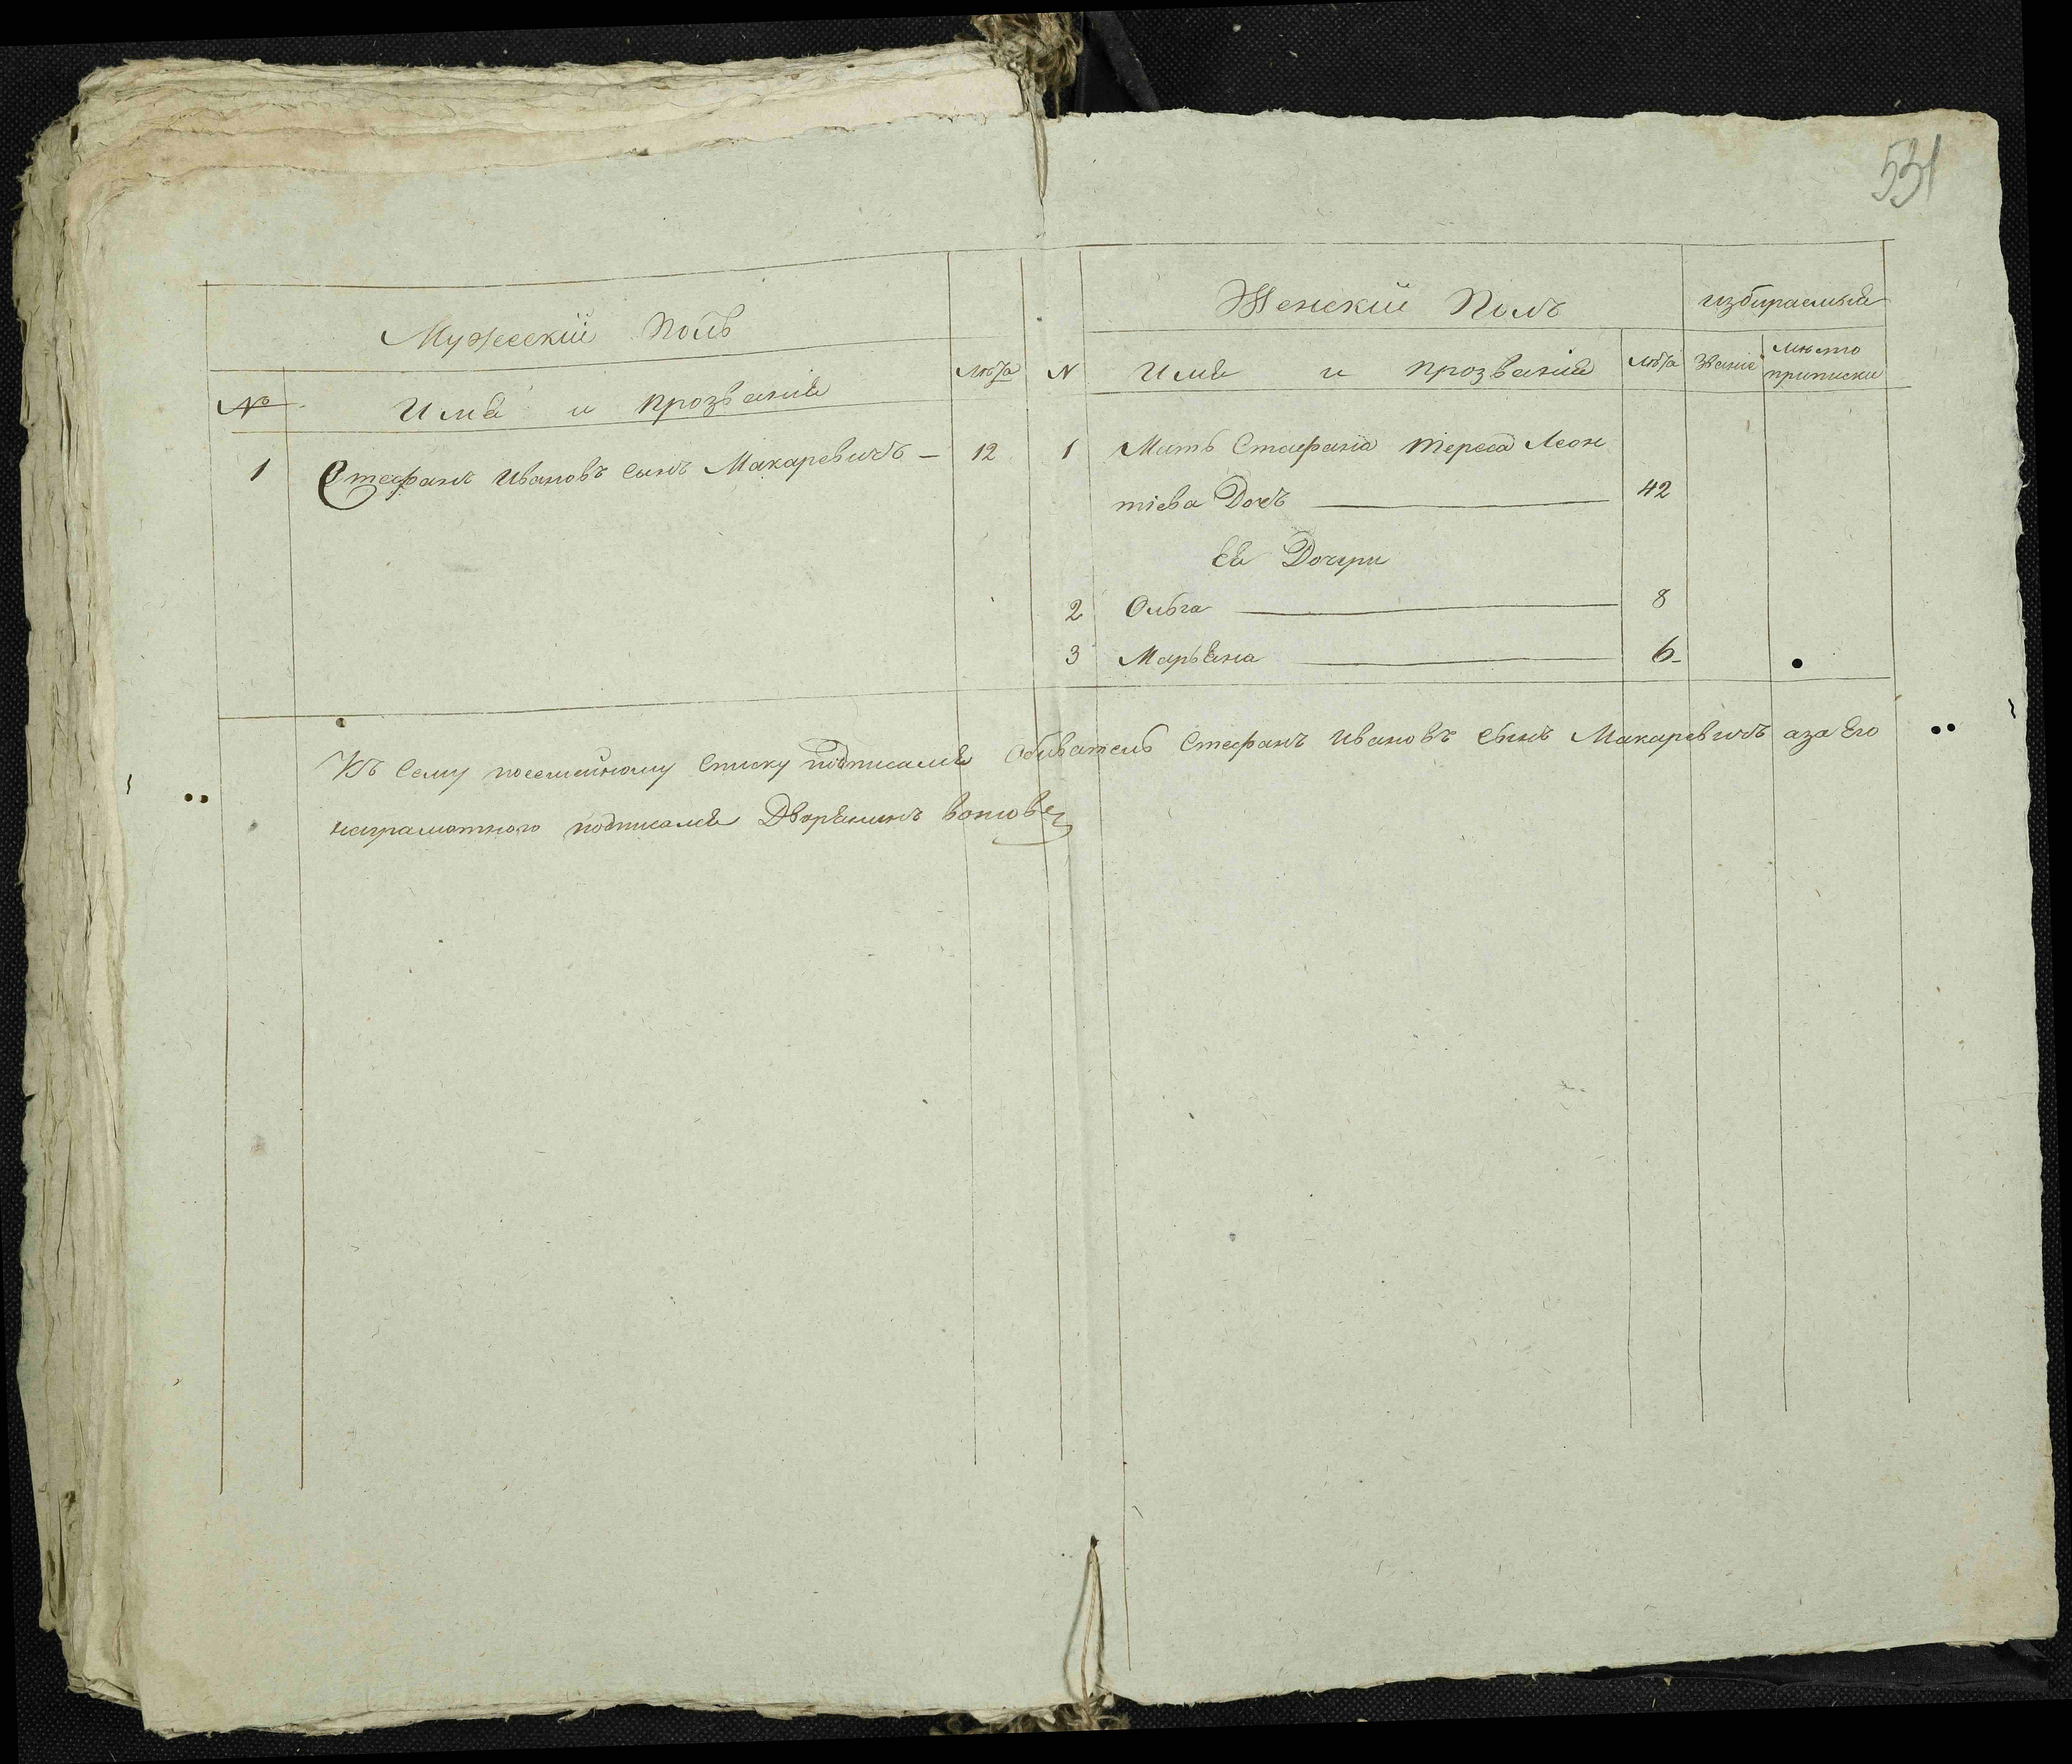 531
Мужескій Полъ
Женскій Полъ
избираемыя
№
Имя и прозваніе
лѣта
N
Имя и прозваніе
лѣта
Званіе
мѣсто
приписки
1 Стефанъ Ивановъ сынъ Макаревичъ — 12
1 Мать Стефана Тереса Леон
тіева Дочъ 42
Ея Дочери
2 Ольга 8
3 Марьяна 6
Къ сему посемейному списку подписался Обыватель Стефанъ Ивановъ сынъ Макаревичъ а за Его
неграмотного подписался Дворянинъ